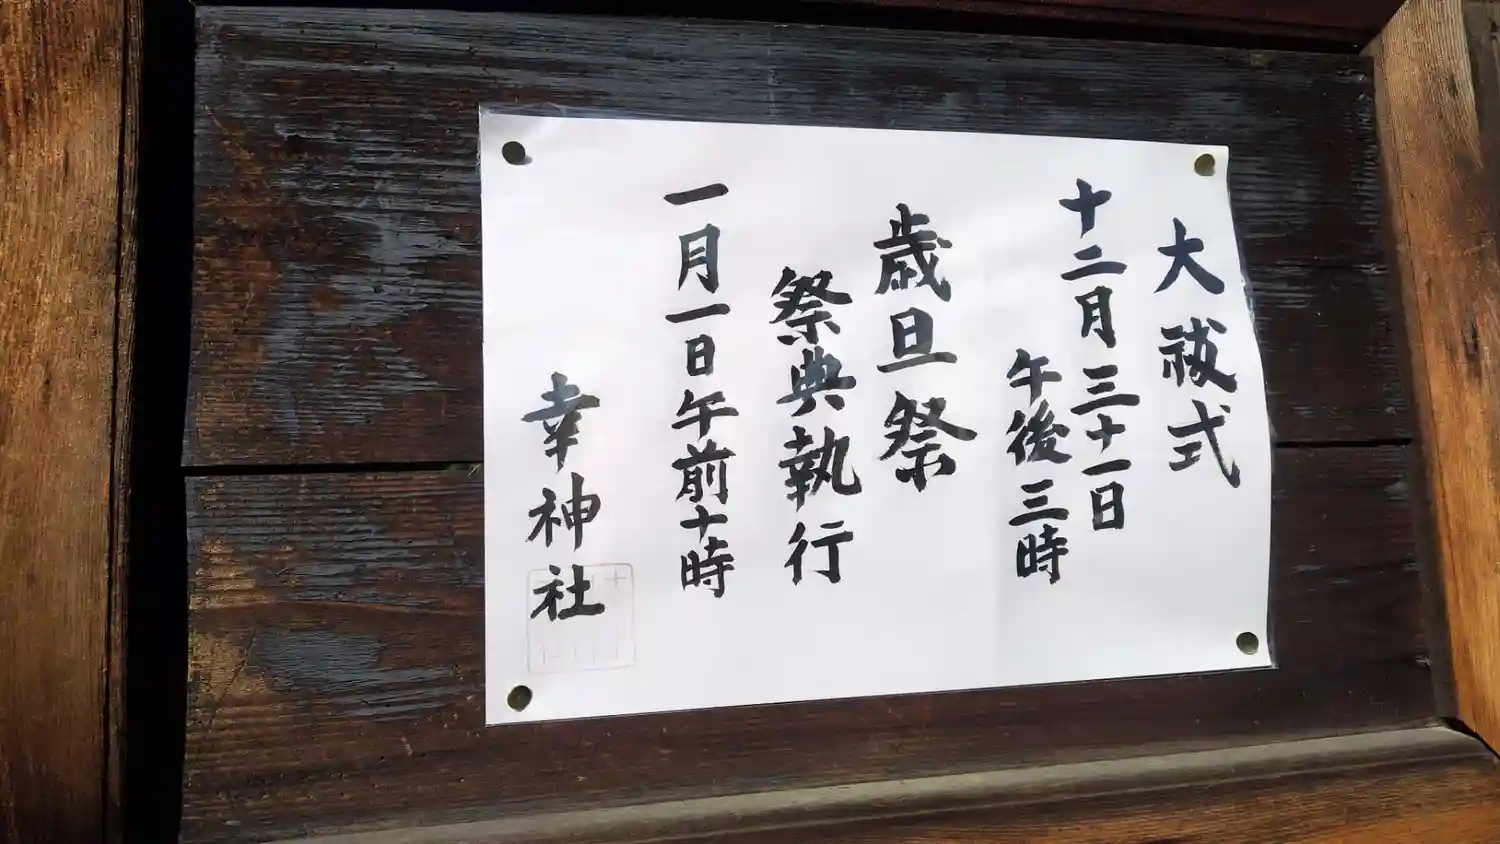 大祓式
十二月三十一日
午後三時
歳旦祭
祭典執行
一月一日午前十時
幸神社